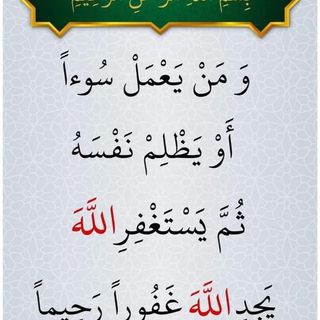 بِسْمِ اللَّهِ الرَّحْمَنِ الرَّحِيمِ
وَ مَنْ يَعْمَلْ سُوءاً
أَوْ يَظْلِمْ نَفْسَهُ
ثُمَّ يَسْتَغْفِرِ اللَّهَ
يَجِدِ اللَّهَ غَفُوراً رَحِيماً